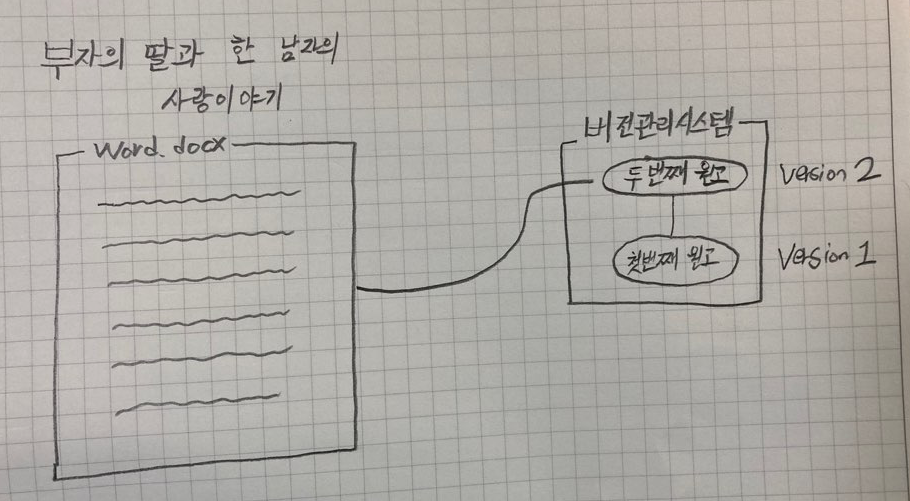 부자의 딸과 한 남자의
사랑이야기
Word.docx
버전관리시스템
두번째 원고
Version 2
첫번째 원고
Version 1